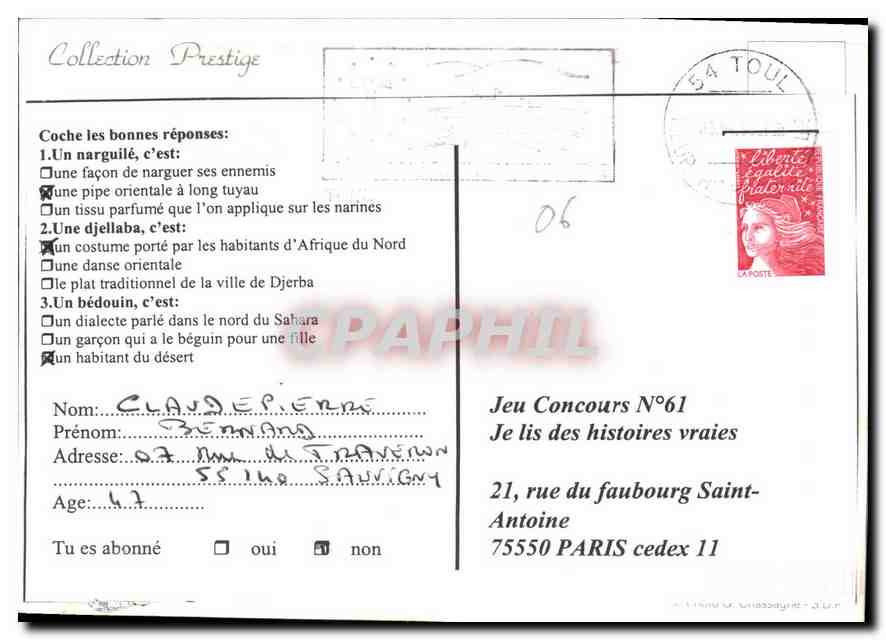 Collection Prestige
54 TOUL
Coche les bonnes réponses:
1.Un narguilé, c'est:
une façon de narguer ses ennemis
une pipe orientale à long tuyau
un tissu parfumé que l'on applique sur les narines
2.Une djellaba, c'est:
un costume porté par les habitants d'Afrique du Nord
une danse orientale
le plat traditionnel de la ville de Djerba
3.Un bédouin, c'est:
un dialecte parlé dans le nord du Sahara
un garçon qui a le béguin pour une fille
un habitant du désert
Nom: CLAUDEPIERRE
Prénom: BERNARD
Adresse: 07 Rue de
55140 SAUVIGNY
Age: 47
Tu es abonné oui non
06
liberté
égalité
fraternité
RÉPUBLIQUE FRANÇAISE
LA POSTE
Jeu Concours N°61
Je lis des histoires vraies
21, rue du faubourg Saint-
Antoine
75550 PARIS cedex 11
CPAPHIL
Chassagne - S.D.P